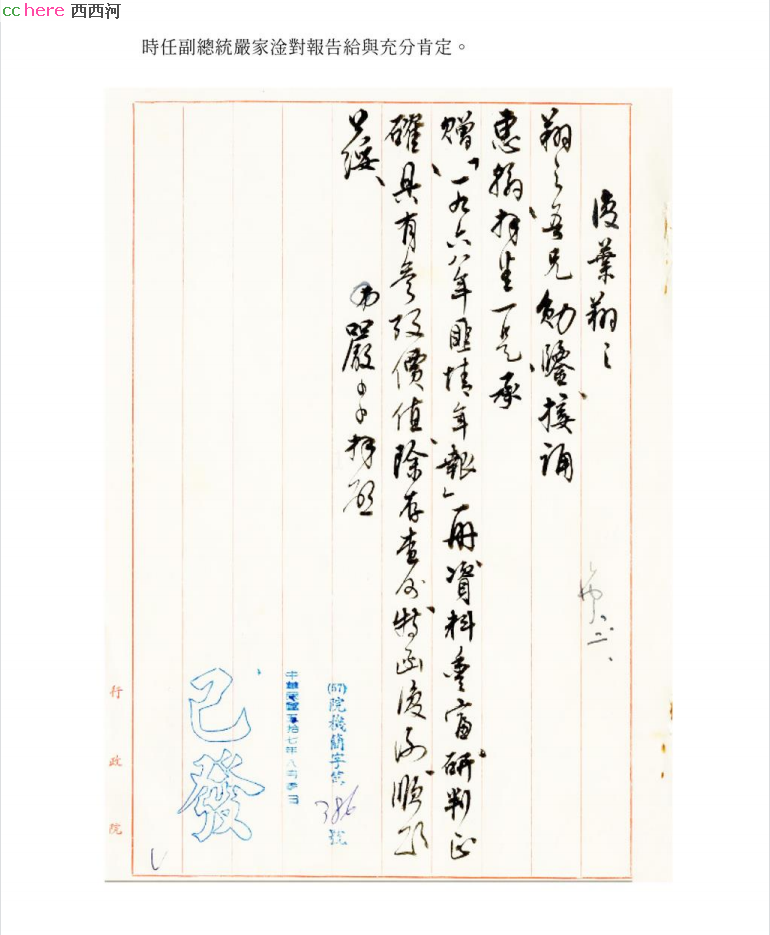 cchere 西西河
時任副總統嚴家淦對報告給與充分肯定。
復葉翔之
翔之吾兄勛鑒接誦
惠翰拜悉一是承
贈「一九六八年匪情年報」一冊資料豐富研判正
確具有參攷價值除存查外特函復謝順頌
公綏
弟嚴〇〇拜啟
(57)院機簡字第386號
中華民國五拾七年八月 日
已發
行政院